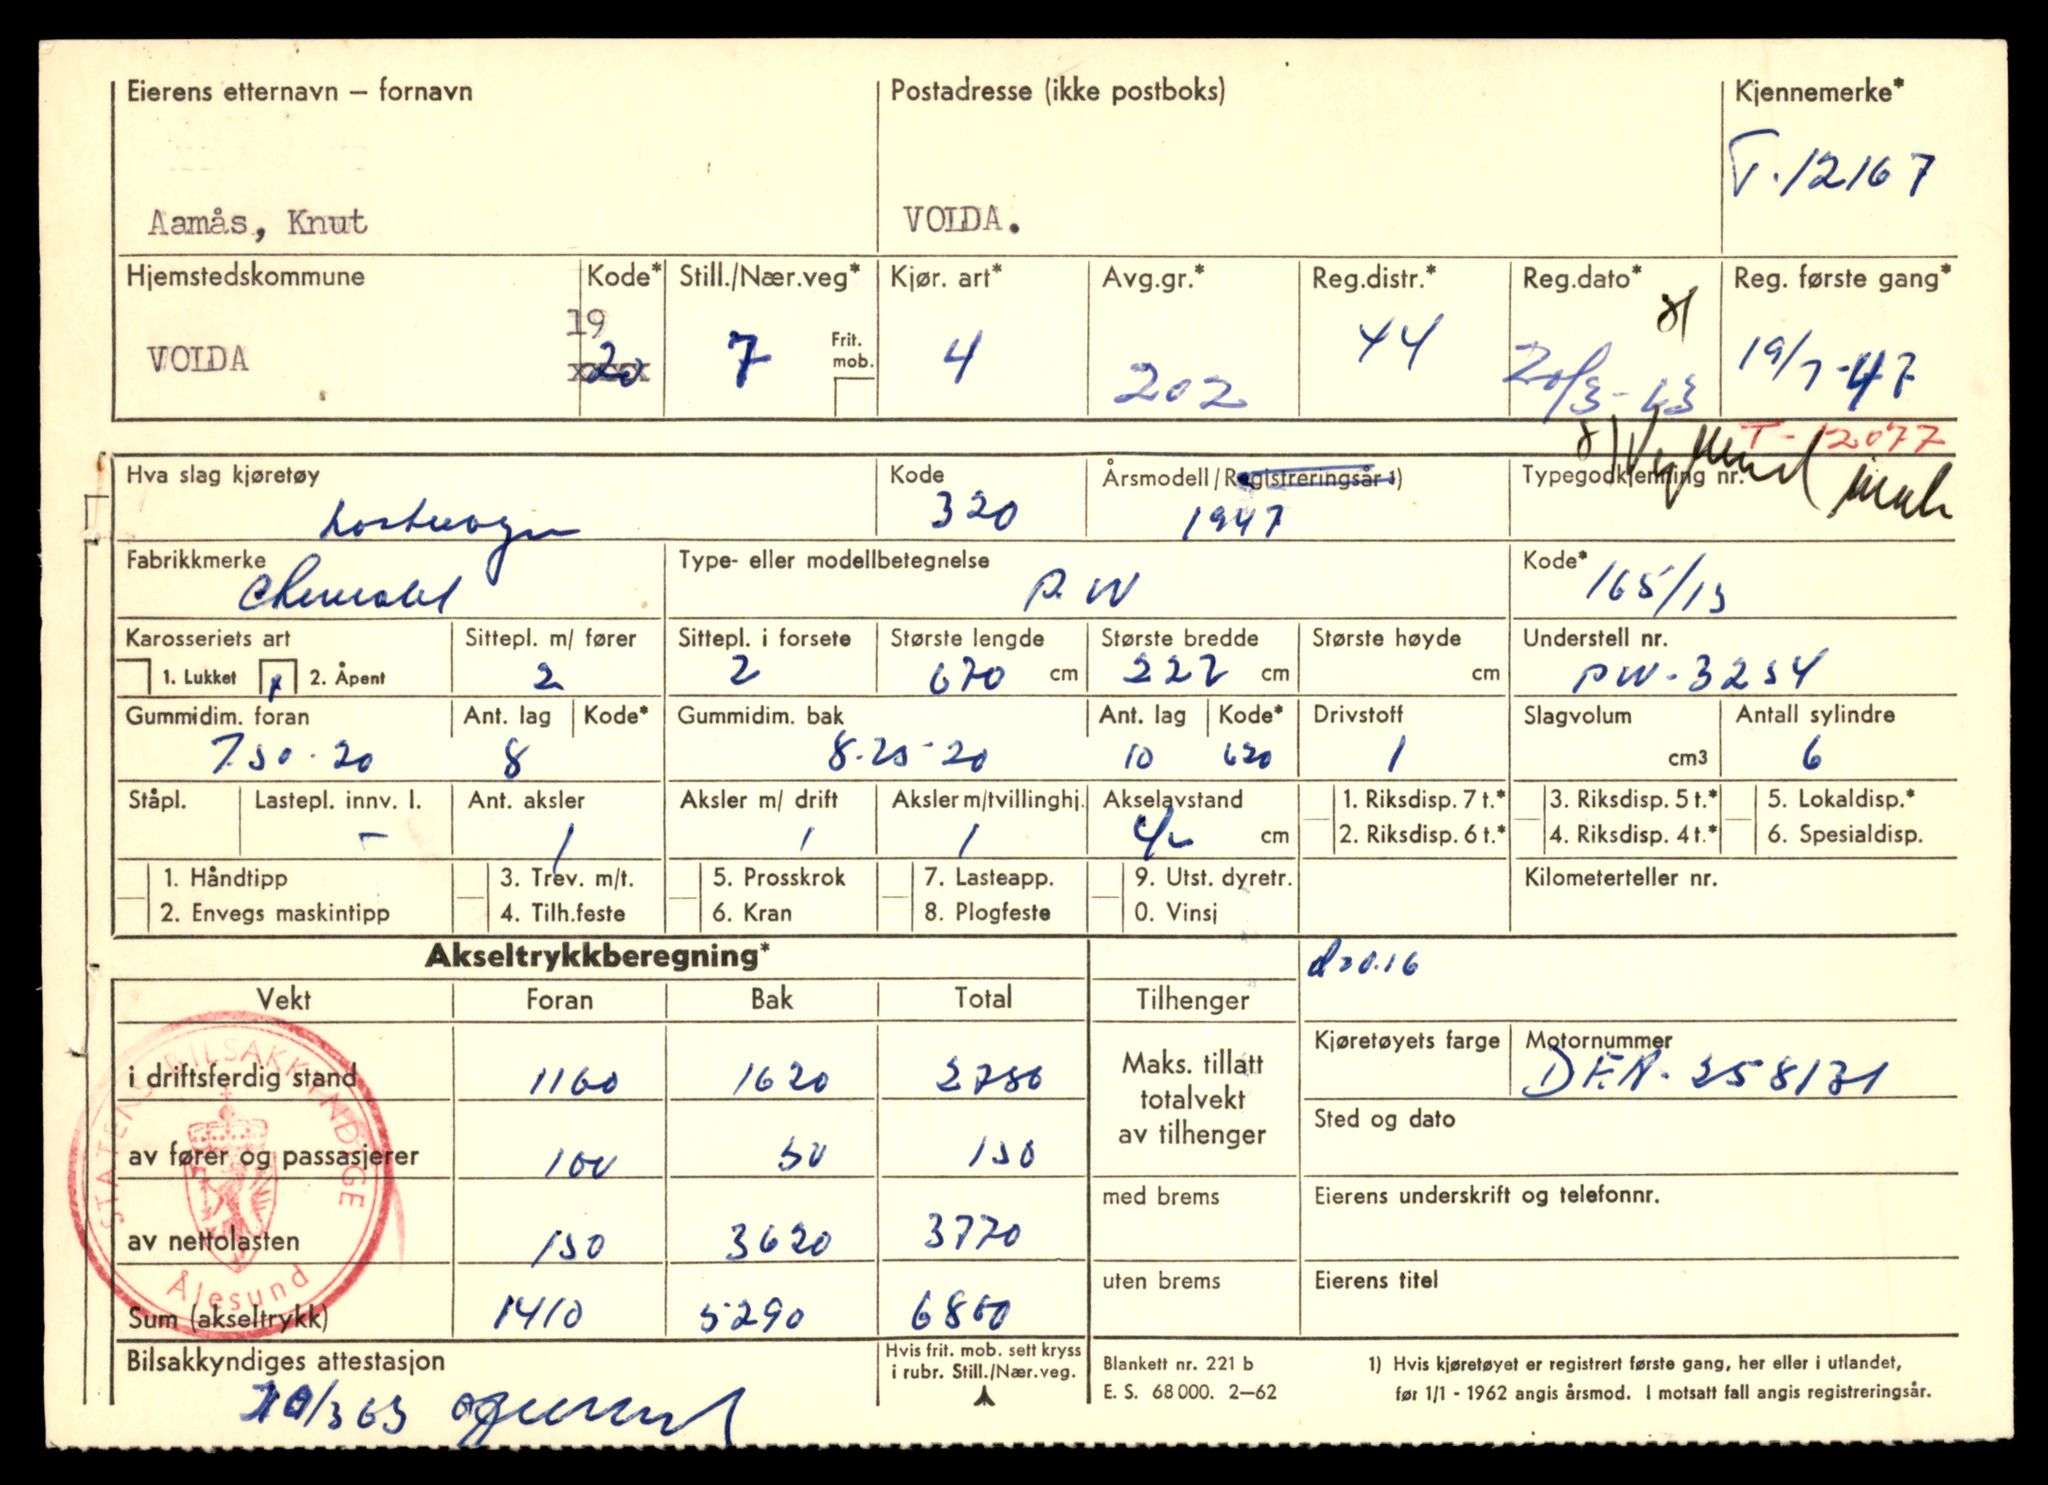 Eierens etternavn – fornavn
Aamås, Knut
Postadresse (ikke postboks)
VOLDA.
Kjennemerke*
T-12167
Hjemstedskommune
VOLDA
Kode*
19
20
Still./Nær.veg*
7
Frit. mob.
Kjør. art*
4
Avg.gr.*
202
Reg.distr.*
44
Reg.dato*
20/3-63
Reg. første gang*
19/7-47
T-12077
Hva slag kjøretøy
Lastevogn
Kode
320
Årsmodell/Registreringsår 1)
1947
Typegodkjenning nr.
Fabrikkmerke
Chevrolet
Type- eller modellbetegnelse
P.W
Kode*
165/13
Karosseriets art
1. Lukket
x 2. Åpent
Sittepl. m/ fører
2
Sittepl. i forsete
2
Største lengde
670 cm
Største bredde
222 cm
Største høyde
cm
Understell nr.
PW-3254
Gummidim. foran
7.50-20
Ant. lag
8
Kode*
Gummidim. bak
8.25-20
Ant. lag
10
Kode*
620
Drivstoff
1
Slagvolum
cm3
Antall sylindre
6
Ståpl.
Lastepl. innv. l.
–
Ant. aksler
1
Aksler m/ drift
1
Aksler m/tvillinghj.
1
Akselavstand
cm
1. Riksdisp. 7 t.*
2. Riksdisp. 6 t.*
3. Riksdisp. 5 t.*
4. Riksdisp. 4 t.*
5. Lokaldisp.*
6. Spesialdisp.
1. Håndtipp
2. Envegs maskintipp
3. Trev. m/t.
4. Tilh.feste
5. Prosskrok
6. Kran
7. Lasteapp.
8. Plogfeste
9. Utst. dyretr.
0. Vinsj
Kilometerteller nr.
Akseltrykkberegning*
Vekt Foran Bak Total
i driftsferdig stand 1160 1620 2780
av fører og passasjerer 100 50 150
av nettolasten 150 3620 3770
Sum (akseltrykk) 1410 5290
STATENS BILSAKKYNDIGE
Ålesund
Tilhenger
Maks. tillatt
totalvekt
av tilhenger
med brems
uten brems
Kjøretøyets farge
Motornummer
DEA-258131
Sted og dato
Eierens underskrift og telefonnr.
Eierens titel
Bilsakkyndiges attestasjon
20/3 63
Hvis frit. mob. sett kryss
i rubr. Still./Nær.veg.
Blankett nr. 221 b
E. S. 68 000. 2–62
1) Hvis kjøretøyet er registrert første gang, her eller i utlandet,
før 1/1 - 1962 angis årsmod. I motsatt fall angis registreringsår.